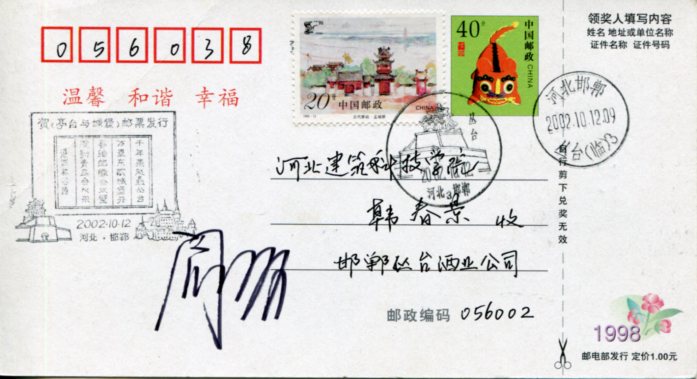 056038
温馨 和谐 幸福
贺《亭台与城堡》邮票发行
2002·10·12
河北·邯郸
20分 中国邮政 CHINA
40分
中国邮政 CHINA
丛台
河北 邯郸
河北邯郸
2002.10.12.09
丛台(临)3
河北建筑科技学院
韩春荣 收
邯郸丛台酒业公司
邮政编码 056002
领奖人填写内容
姓名 地址或单位名称
证件名称 证件号码
自行剪下兑奖无效
1998
邮电部发行 定价1.00元